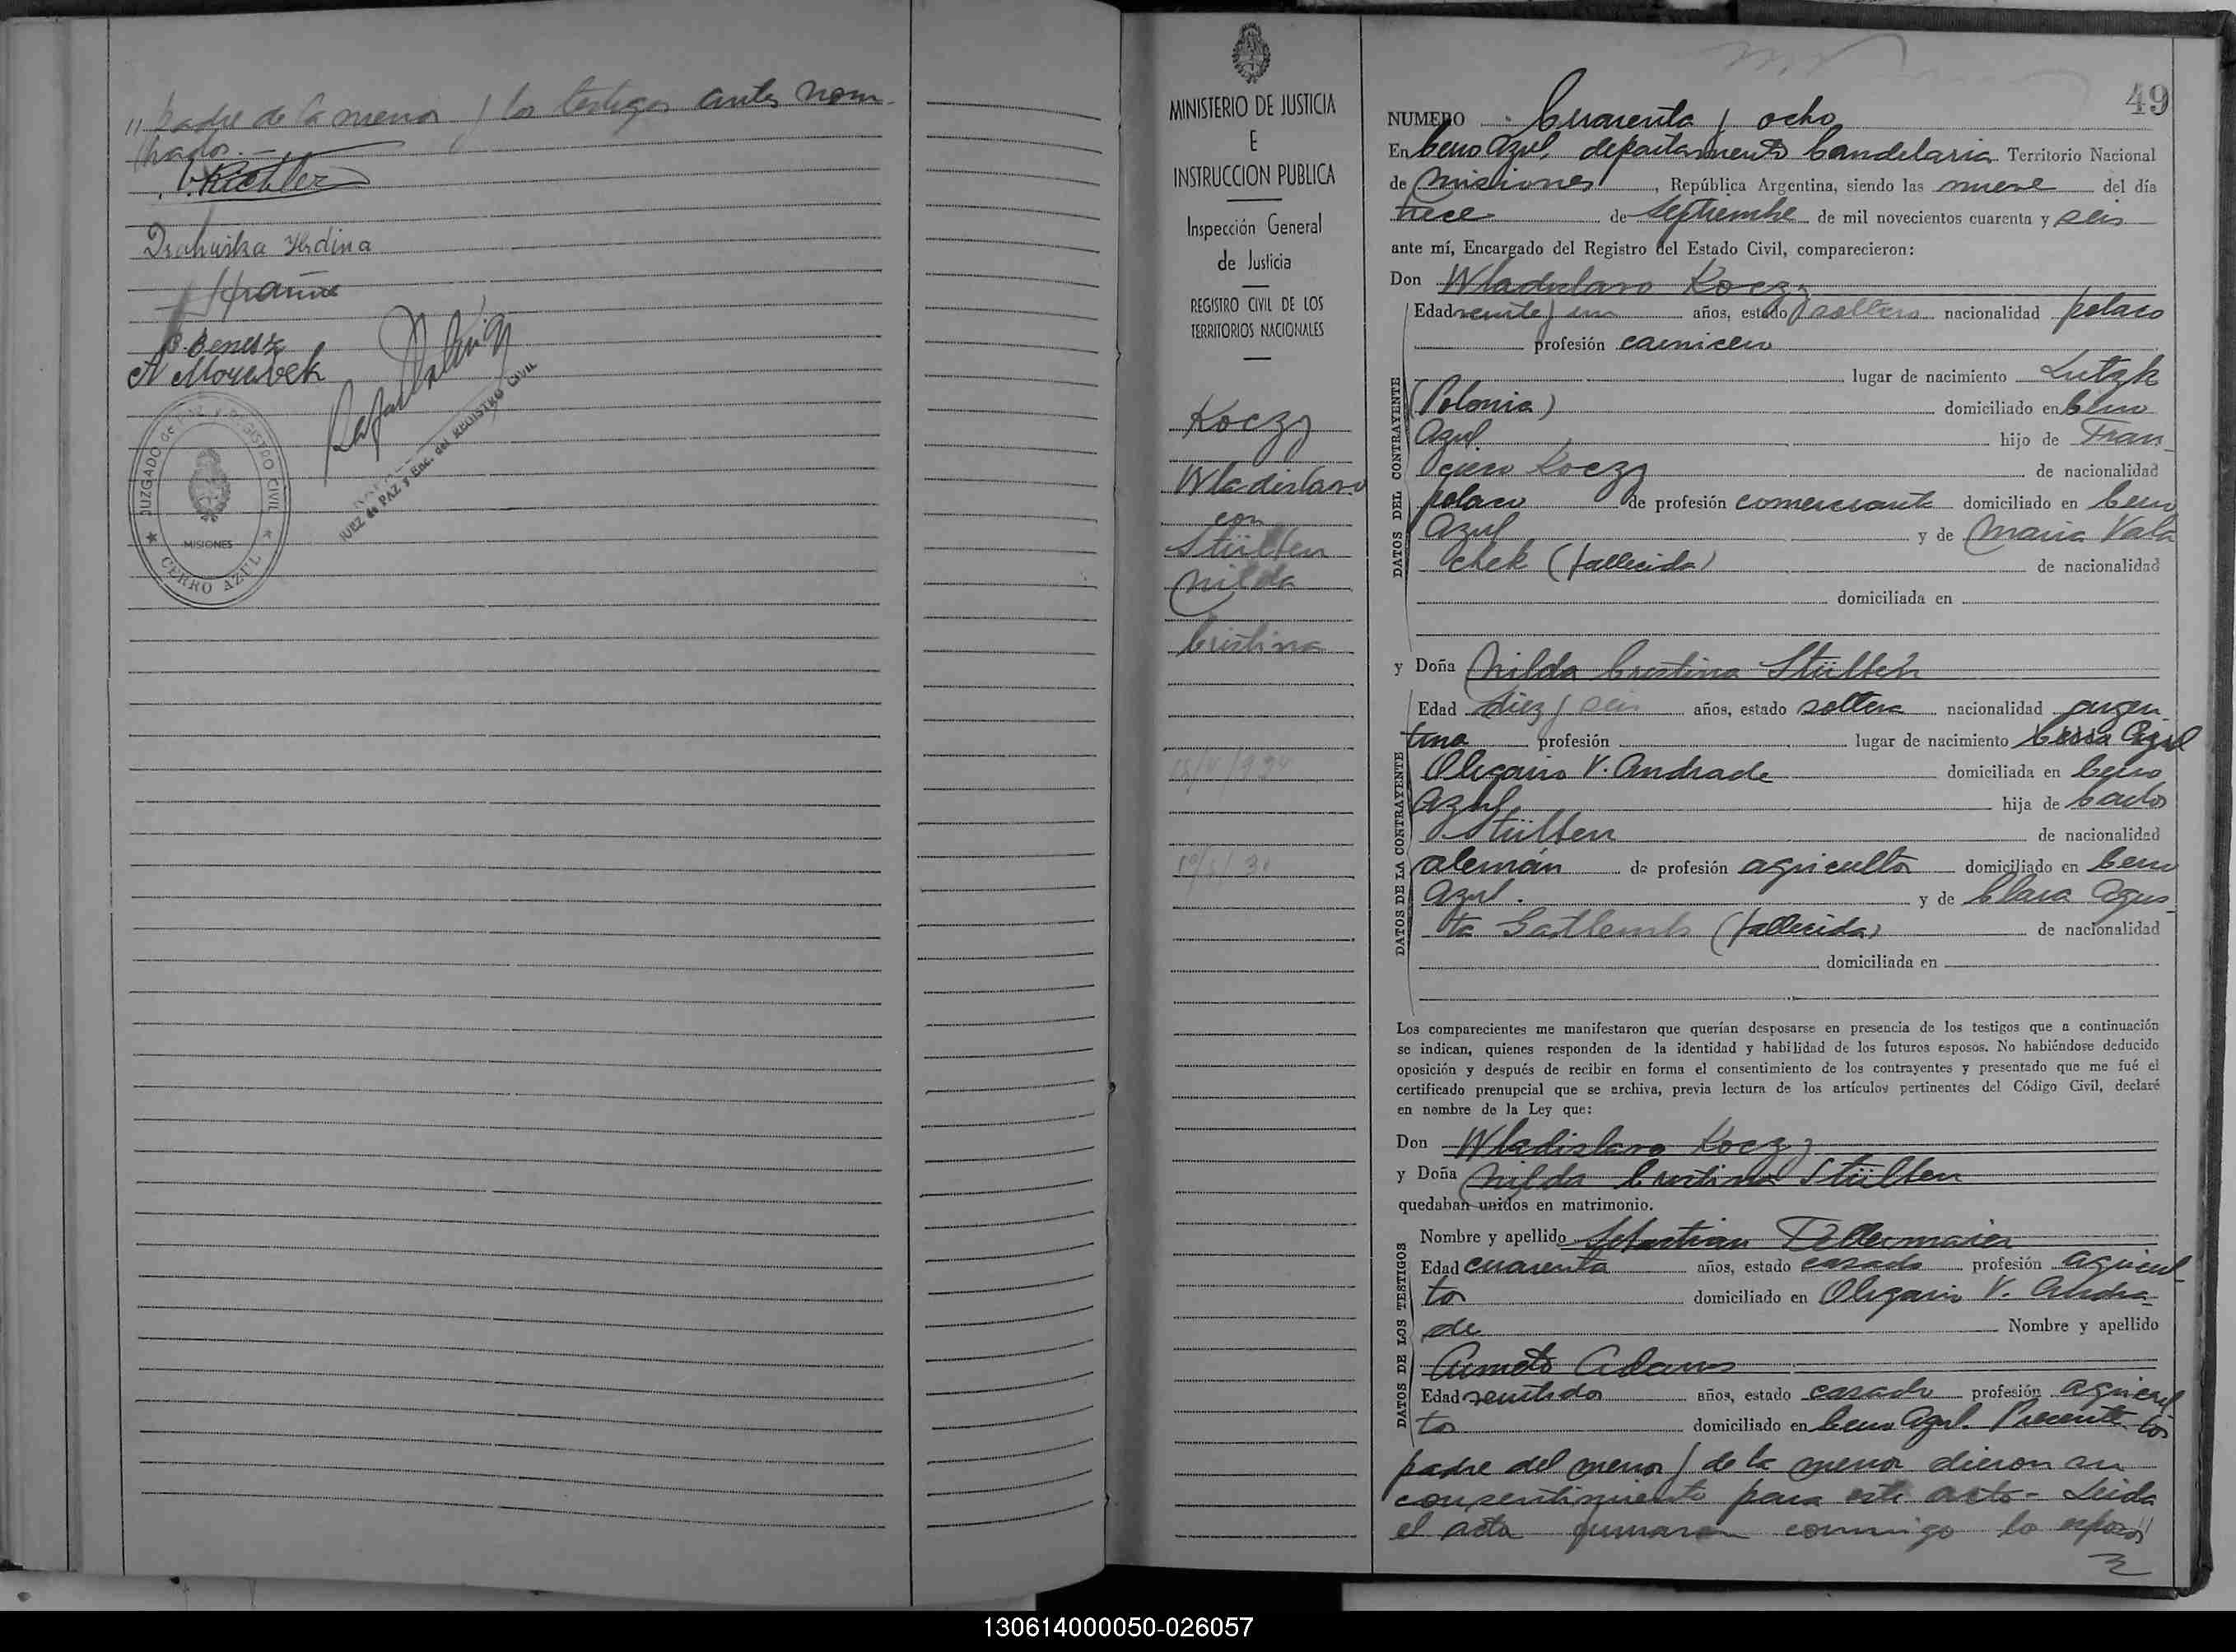 " padre de la menor y los testigos antes nom-
brados.—
Richter
Drahuska Hrdina
B. Benesz
JUZGADO de PAZ y REGISTRO CIVIL
MISIONES
★ CERRO AZUL ★
JUEZ de PAZ y Enc. del REGISTRO CIVIL
MINISTERIO DE JUSTICIA
E
INSTRUCCION PUBLICA
Inspección General
de Justicia
REGISTRO CIVIL DE LOS
TERRITORIOS NACIONALES
Koczy
Wladislavo
con
Stülten
Nilda
Cristina
49
NUMERO Cuarenta y ocho
En Cerro Azul, departamento Candelaria Territorio Nacional
de Misiones, República Argentina, siendo las nueve del día
trece de Septiembre de mil novecientos cuarenta y seis
ante mí, Encargado del Registro del Estado Civil, comparecieron:
Don Wladislavo Koczy
Edad veinte y un años, estado soltero nacionalidad polaco
profesión carnicero
lugar de nacimiento Lutzk
(Polonia) domiciliado en Cerro
Azul hijo de Fran-
cisco Koczy de nacionalidad
polaco de profesión comerciante domiciliado en Cerro
Azul y de Maria Vala
chek (fallecida) de nacionalidad
domiciliada en
DATOS DEL CONTRAYENTE
y Doña Nilda Cristina Stülten
Edad diez y seis años, estado soltera nacionalidad argen-
tina profesión lugar de nacimiento Cerro Azul
Olegario V. Andrade domiciliada en Cerro
Azul hija de Carlos
Stülten de nacionalidad
alemán de profesión agricultor domiciliado en Cerro
Azul. y de Clara Agus-
ta (fallecida) de nacionalidad
domiciliada en
DATOS DE LA CONTRAYENTE
Los comparecientes me manifestaron que querían desposarse en presencia de los testigos que a continuación
se indican, quienes responden de la identidad y habilidad de los futuros esposos. No habiéndose deducido
oposición y después de recibir en forma el consentimiento de los contrayentes y presentado que me fué el
certificado prenupcial que se archiva, previa lectura de los artículos pertinentes del Código Civil, declaré
en nombre de la Ley que:
Don Wladislavo Koczy
y Doña Nilda Cristina Stülten
quedaban unidos en matrimonio.
Nombre y apellido Sebastian
Edad cuarenta años, estado casado profesión agricul-
tor domiciliado en Olegario V. Andra-
de Nombre y apellido
Edad veintidos años, estado casado profesión agricul
tor domiciliado en Cerro Azul. Presente los
DATOS DE LOS TESTIGOS
padre del menor y de la menor dieron su
consentimiento para este acto - Leida
el acta firmaron conmigo los esposos"
130614000050-026057